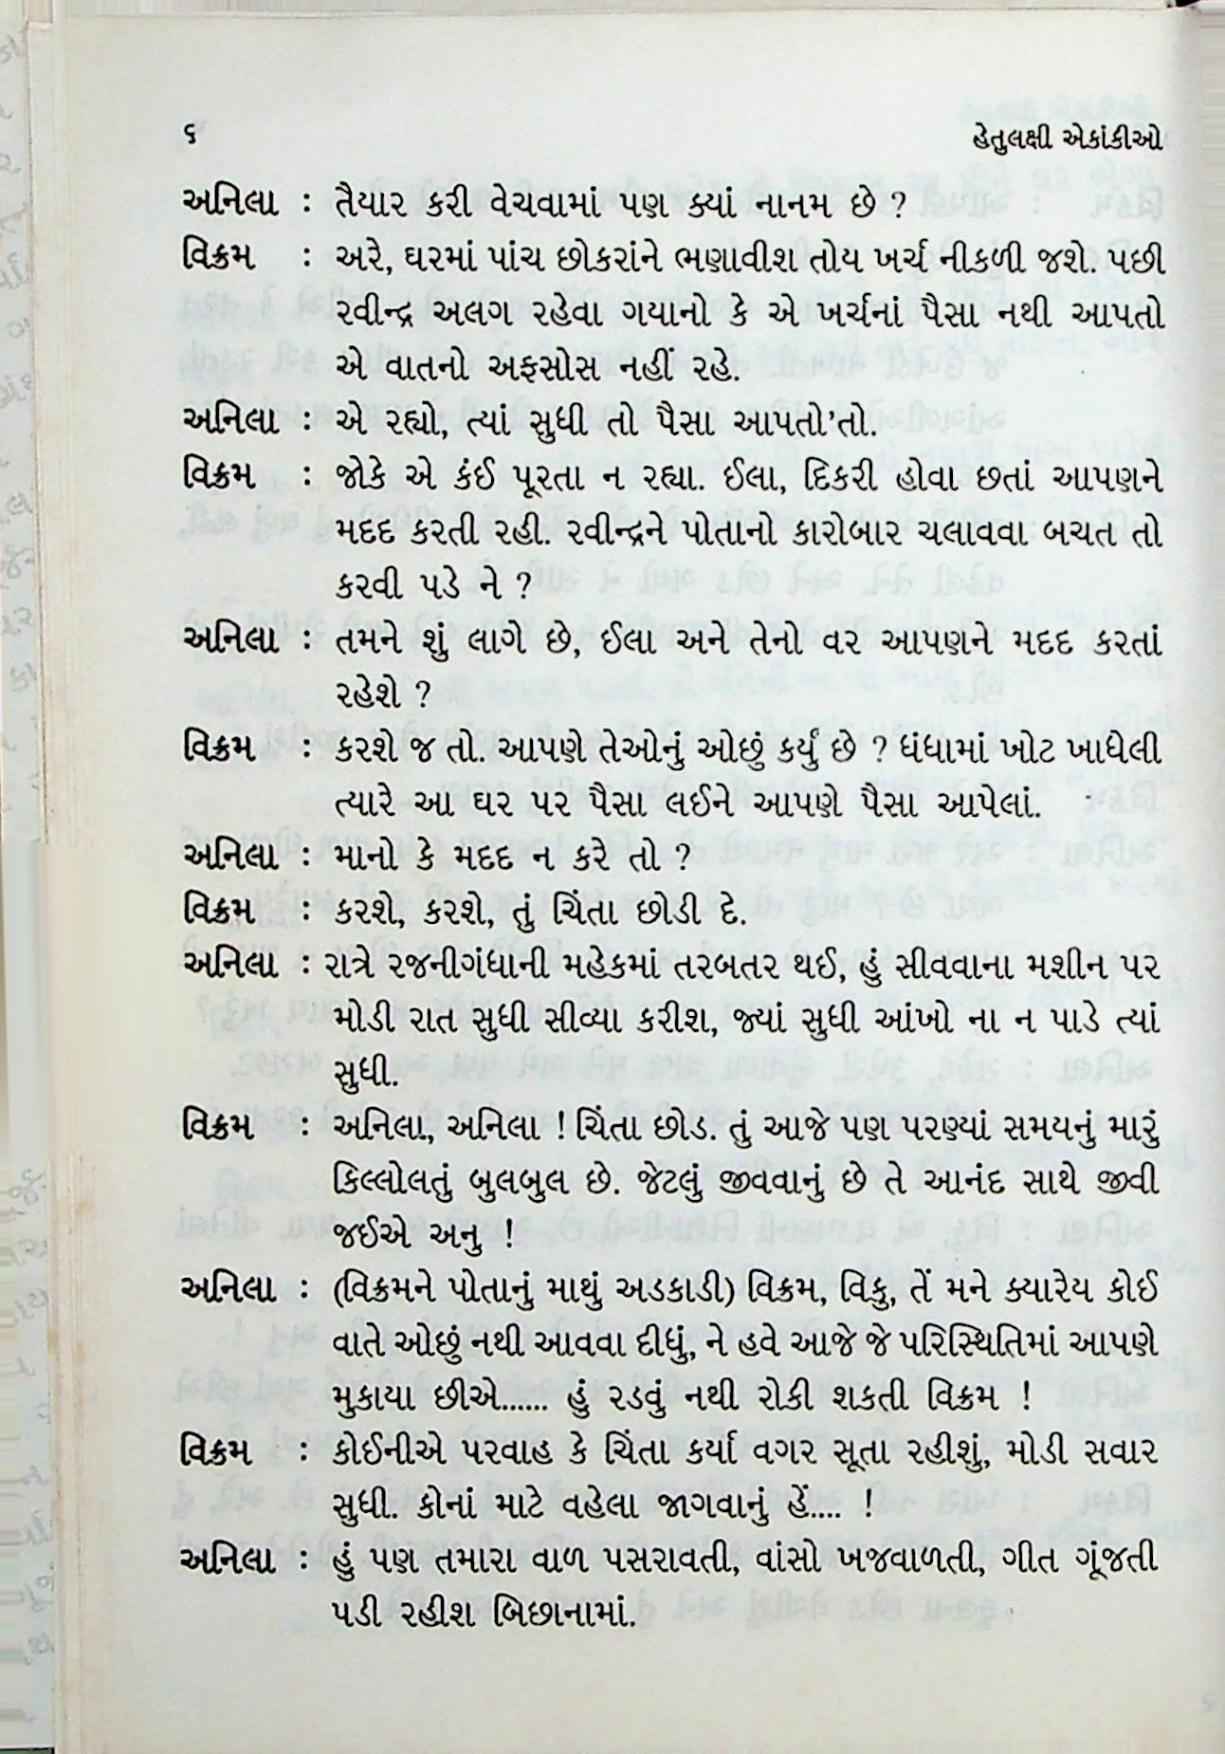 ૬ હેતુલક્ષી એકાંકીઓ
અનિલા : તૈયાર કરી વેચવામાં પણ ક્યાં નાનમ છે ?
વિક્રમ : અરે, ઘરમાં પાંચ છોકરાંને ભણાવીશ તોય ખર્ચ નીકળી જશે. પછી
રવીન્દ્ર અલગ રહેવા ગયાનો કે એ ખર્ચનાં પૈસા નથી આપતો
એ વાતનો અફસોસ નહીં રહે.
અનિલા : એ રહ્યો, ત્યાં સુધી તો પૈસા આપતો'તો.
વિક્રમ : જોકે એ કંઈ પૂરતા ન રહ્યા. ઈલા, દિકરી હોવા છતાં આપણને
મદદ કરતી રહી. રવીન્દ્રને પોતાનો કારોબાર ચલાવવા બચત તો
કરવી પડે ને ?
અનિલા : તમને શું લાગે છે, ઈલા અને તેનો વર આપણને મદદ કરતાં
રહેશે ?
વિક્રમ : કરશે જ તો. આપણે તેઓનું ઓછું કર્યું છે ? ધંધામાં ખોટ ખાધેલી
ત્યારે આ ઘર પર પૈસા લઈને આપણે પૈસા આપેલાં.
અનિલા : માનો કે મદદ ન કરે તો .?
વિક્રમ : કરશે, કરશે, તું ચિંતા છોડી દે.
અનિલા : રાત્રે રજનીગંધાની મહેકમાં તરબતર થઈ, હું સીવવાના મશીન પર
મોડી રાત સુધી સીવ્યા કરીશ, જ્યાં સુધી આંખો ના ન પાડે ત્યાં
સુધી.
વિક્રમ : અનિલા, અનિલા ! ચિંતા છોડ. તું આજે પણ પરણ્યાં સમયનું મારું
કિલ્લોલતું બુલબુલ છે. જેટલું જીવવાનું છે તે આનંદ સાથે જીવી
જઈએ અનુ !
અનિલા : (વિક્રમને પોતાનું માથું અડકાડી) વિક્રમ, વિકુ, તેં મને ક્યારેય કોઈ
વાતે ઓછું નથી આવવા દીધું, ને હવે આજે જે પરિસ્થિતિમાં આપણે
મુકાયા છીએ...... હું રડવું નથી રોકી શકતી વિક્રમ !
વિક્રમ : કોઈનીએ પરવાહ કે ચિંતા કર્યા વગર સૂતા રહીશું, મોડી સવાર
સુધી. કોનાં માટે વહેલા જાગવાનું હેં.... !
અનિલા : હું પણ તમારા વાળ પસરાવતી, વાંસો ખજવાળતી, ગીત ગૂંજતી
પડી રહીશ બિછાનામાં.